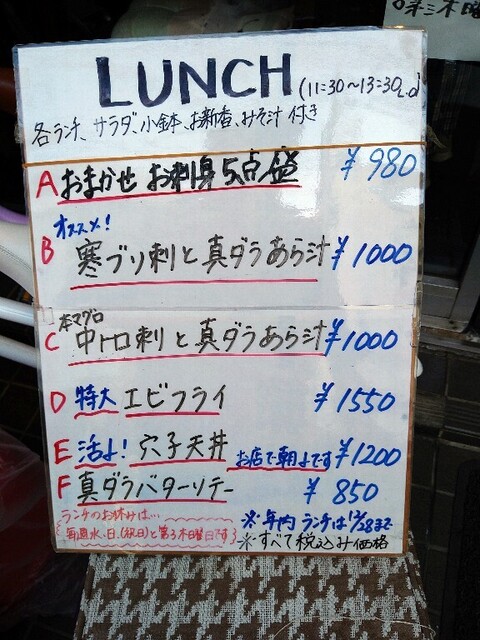 LUNCH (11:30〜13:30L.O)
各ランチ、サラダ、小鉢、お新香、みそ汁 付き
A おまかせ お刺身5点盛 ¥980
オススメ!
B 寒ブリ刺と真ダラあら汁 ¥1000
本マグロ
C 中トロ刺と真ダラあら汁 ¥1000
D 特大 エビフライ ¥1550
E 活よ! 穴子天丼 お店で朝〆です ¥1200
F 真ダラバターソテー ¥850
ランチのお休みは…
毎週水、日、(祝日)と第3木曜日です
※年内 ランチは12/28まで
※すべて税込み価格